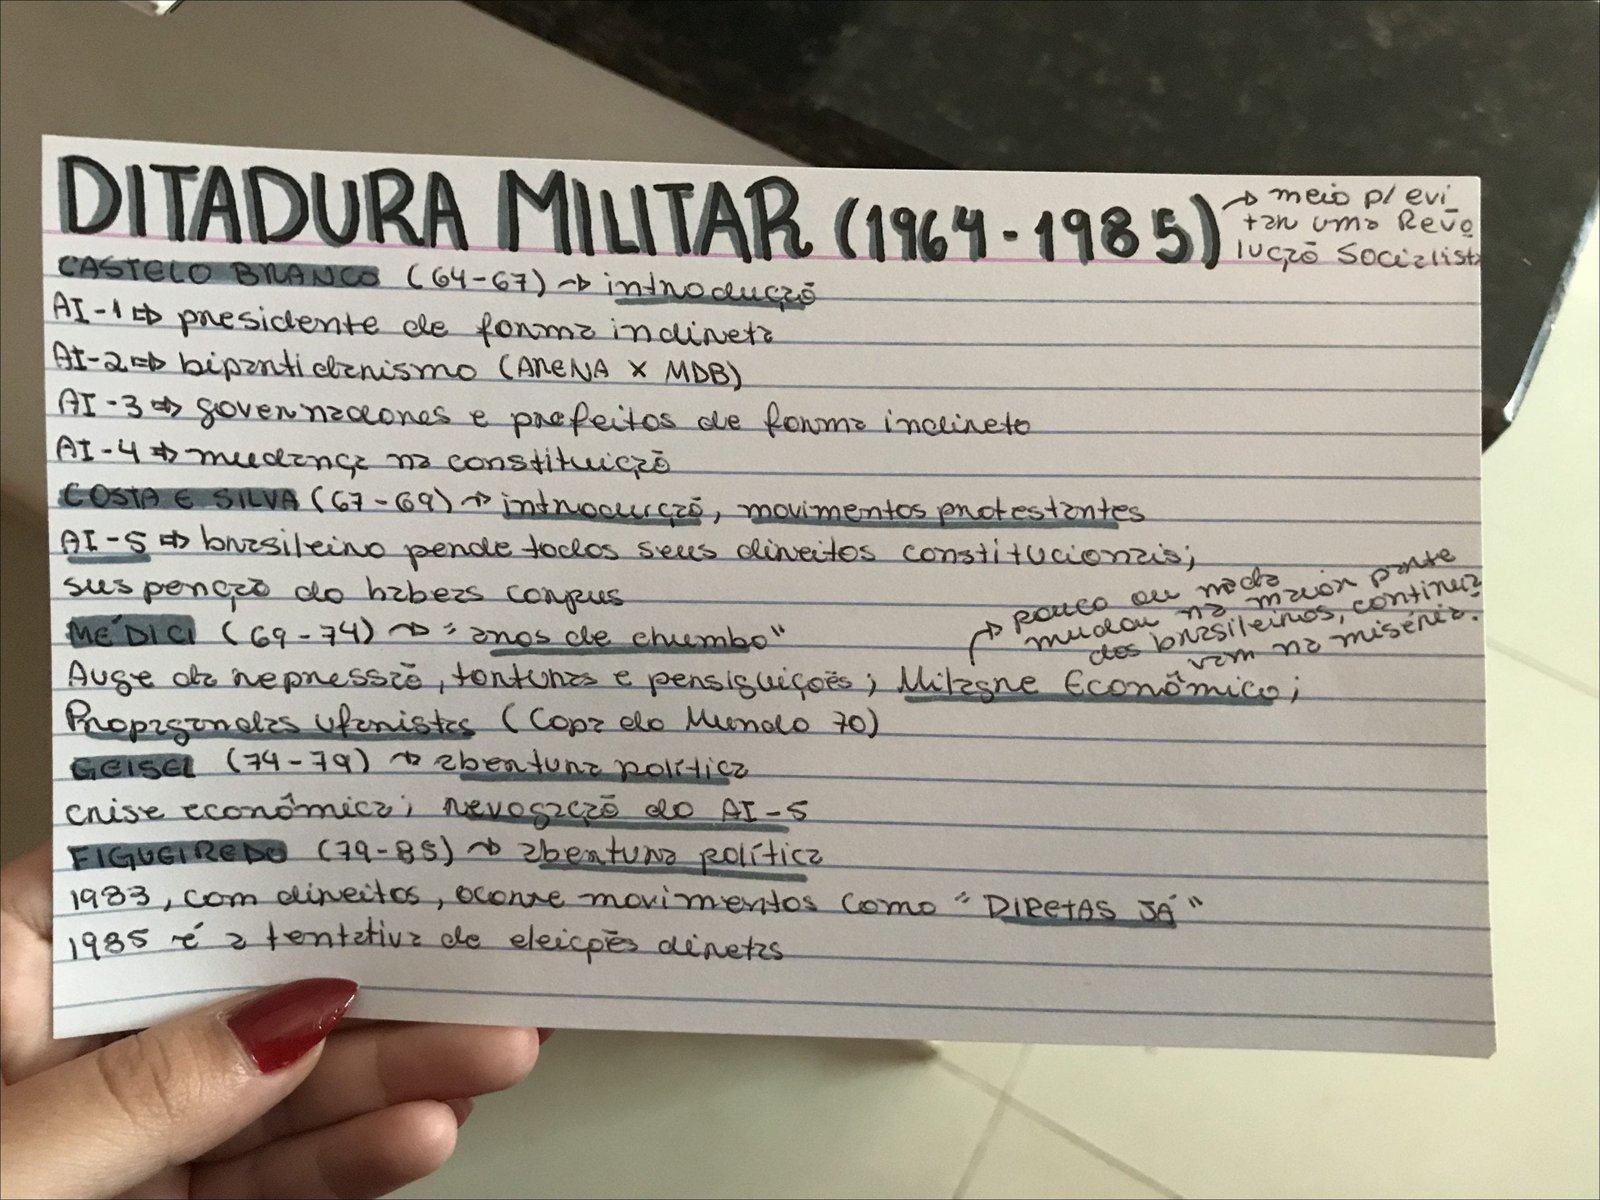 DITADURA MILITAR (1964-1985) → meio p/ evi
tar uma Revo
lução Socialista
CASTELO BRANCO (64-67) → introdução
AI-1 ⇒ presidente de forma indireta
AI-2 ⇒ bipartidarismo (ARENA X MDB)
AI-3 ⇒ governadores e prefeitos de forma indireto
AI-4 ⇒ mudança na constituição
COSTA E SILVA (67-69) → introdução, movimentos protestantes
AI-5 ⇒ brasileiro perde todos seus direitos constitucionais;
suspenção do habeas corpus
MÉDICI (69-74) → "anos de chumbo"
→ pouco ou nada
mudou na maior parte
dos brasileiros, continua
vam na miséria.
Auge da repressão, torturas e persiguições; Milagre Econômico;
Propagandas ufanistas (Copa do Mundo 70)
GEISEL (74-79) → abertura política
crise econômica; revogação do AI-5
FIGUEIREDO (79-85) → abertura política
1983, com direitos, ocorre movimentos como "DIRETAS JÁ"
1985 é a tentativa de eleições diretas